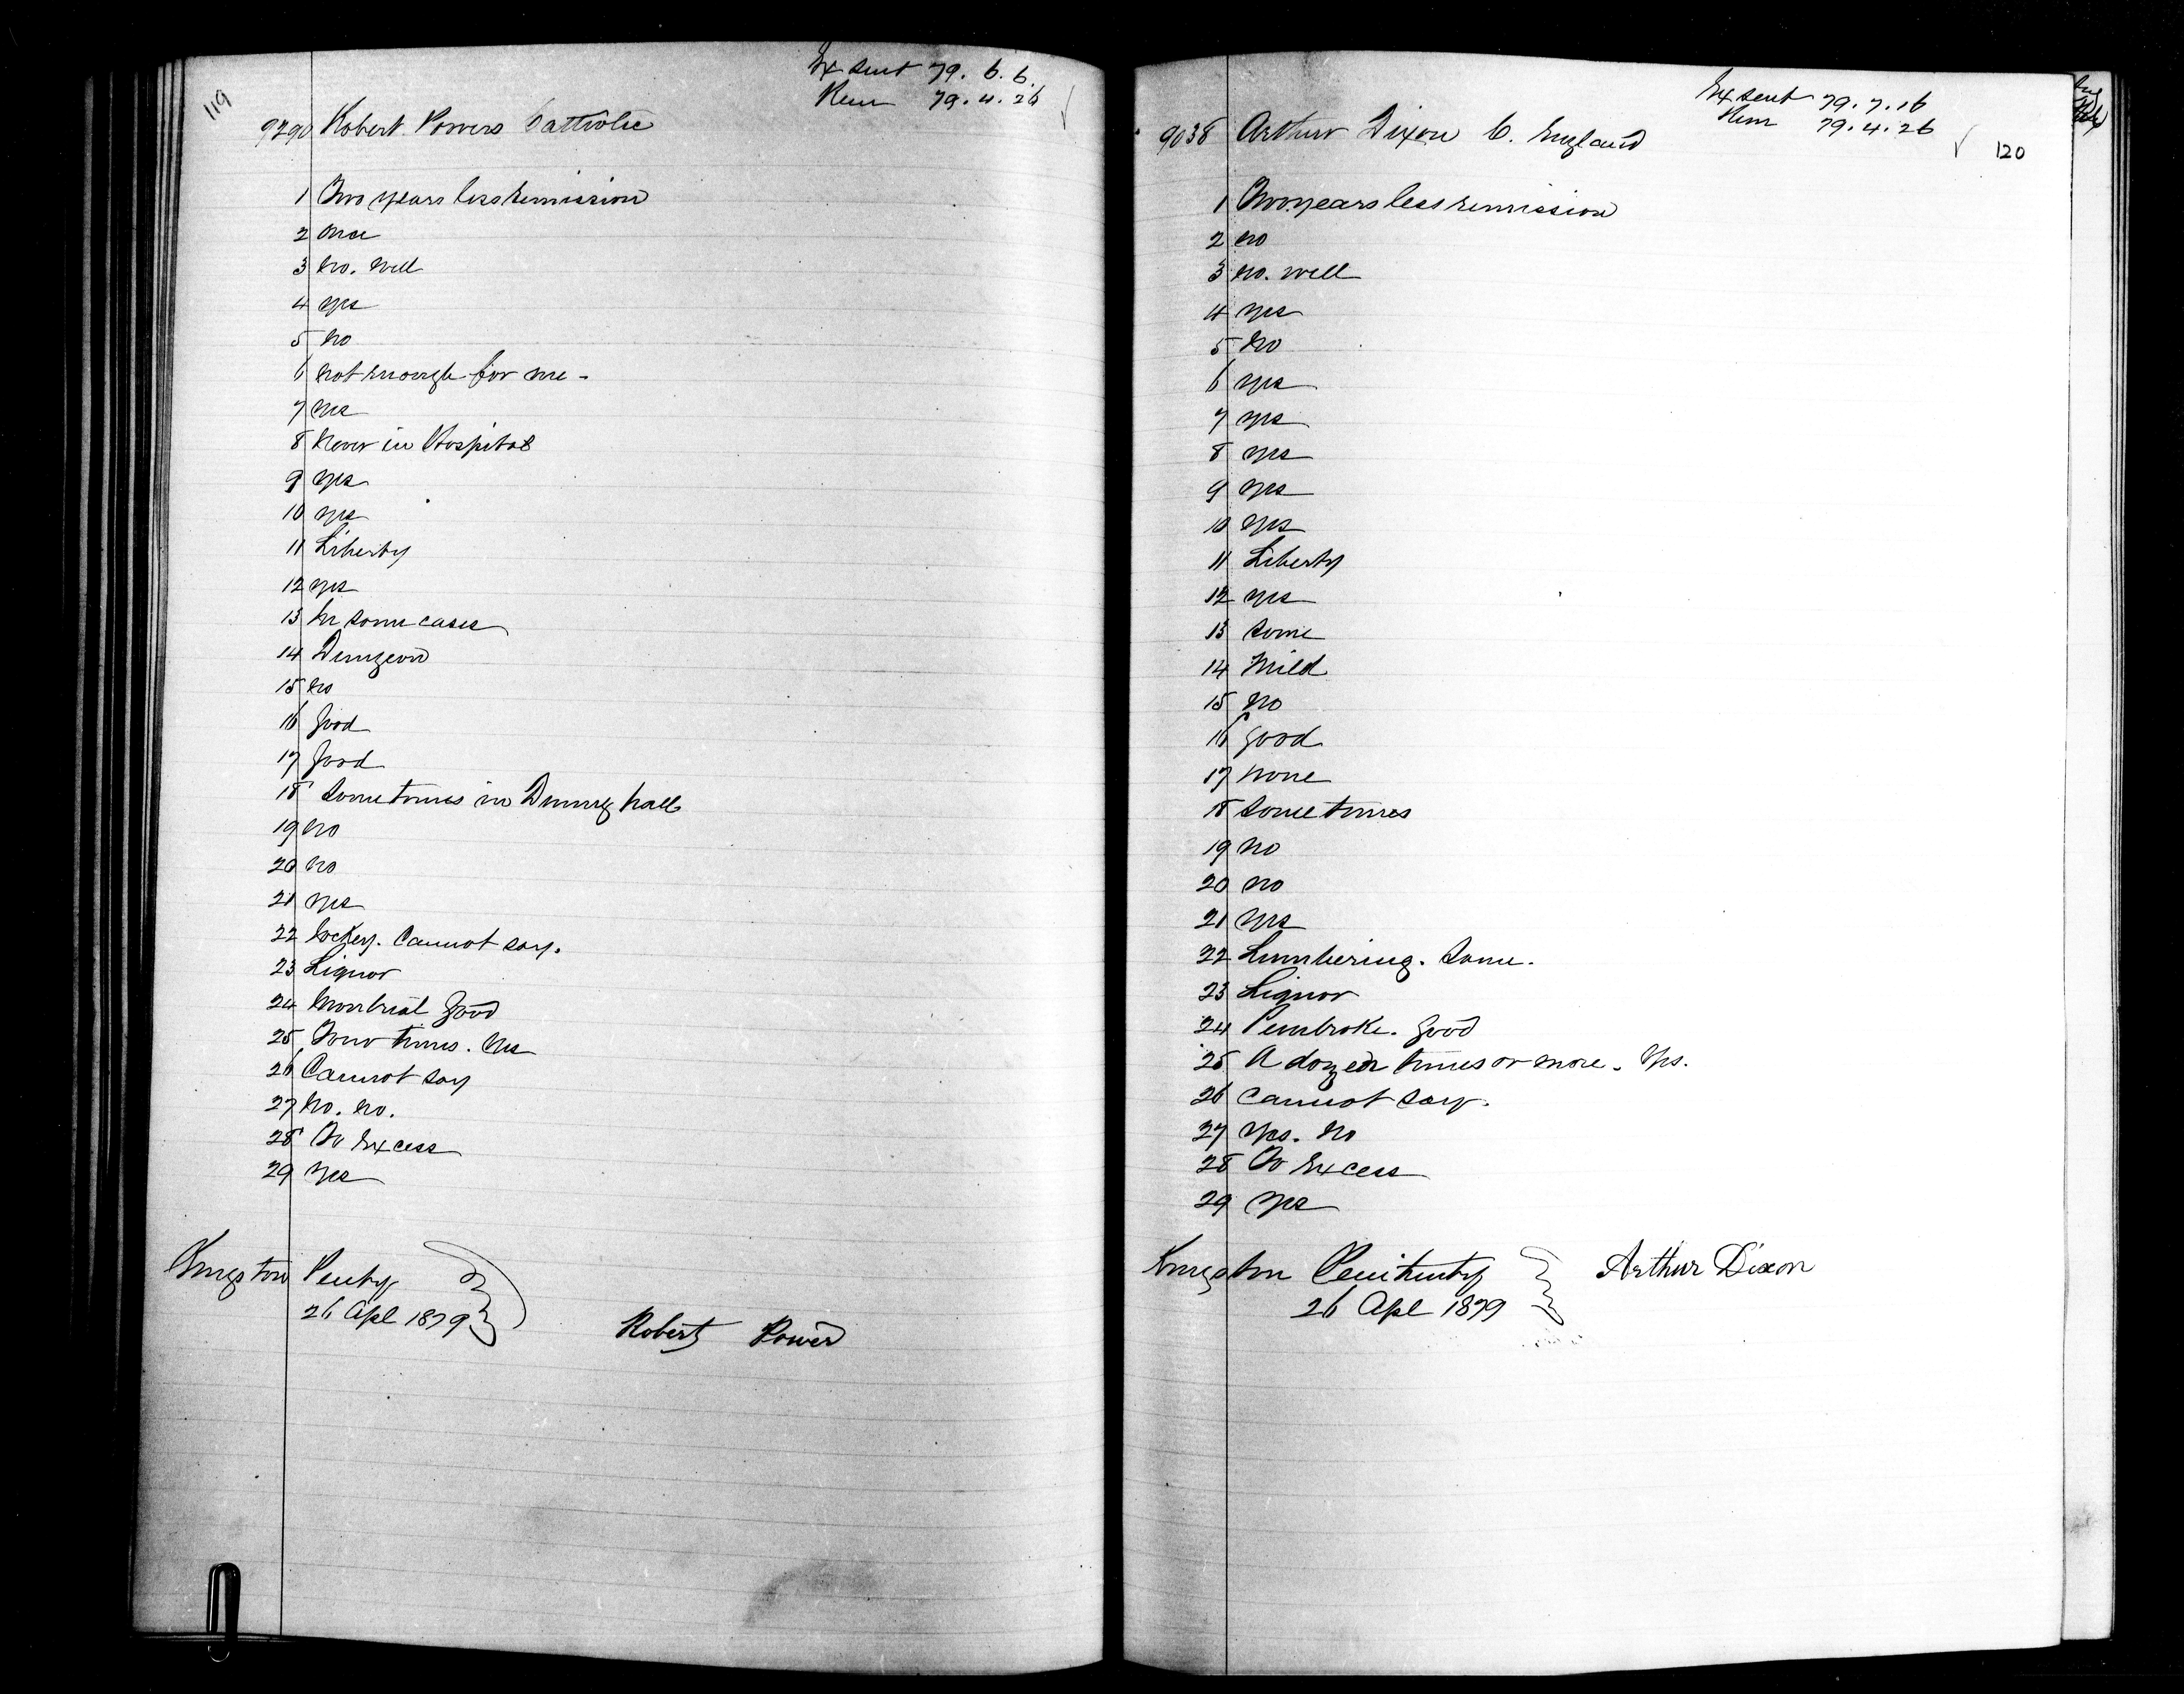 119
Ex sent 79. 6. 6.
Rem 79. 4. 26
9790 Robert Powers Catholic
1 Two years less remission
2 Once
3 No. Well
4 Yes
5 No
6 Not enough for me -
7 Yes
8 Never in Hospital
9 Yes
10 Yes
11 Liberty
12 Yes
13 In some cases
14 Dungeon
15 No
16 Good
17 Good
18 Sometimes in Dining hall
19 No
20 No
21 Yes
22 Jockey. Cannot say.
23 Liquor
24 Montreal Good
25 Four times. Yes
26 Cannot say
27 No. No.
28 To Excess
29 Yes
Kingston Penty
26 Apl 1879
Robert Power
Ex sent 79. 7. 16
Rem 79. 4. 26
120
9038 Arthur Dixon C. England
1 Two years less remission
2 No
3 No. Well
4 Yes
5 No
6 Yes
7 Yes
8 Yes
9 Yes
10 Yes
11 Liberty
12 Yes
13 Some
14 Mild
15 No
16 Good
17 None
18 Sometimes
19 No
20 No
21 Yes
22 Lumbering. Some.
23 Liquor
24 Pembroke. Good
25 A dozen times or more. Yes.
26 Cannot say.
27 Yes. No
28 To Excess
29 Yes
Kingston Penitenty
26 Apl 1879
Arthur Dixon